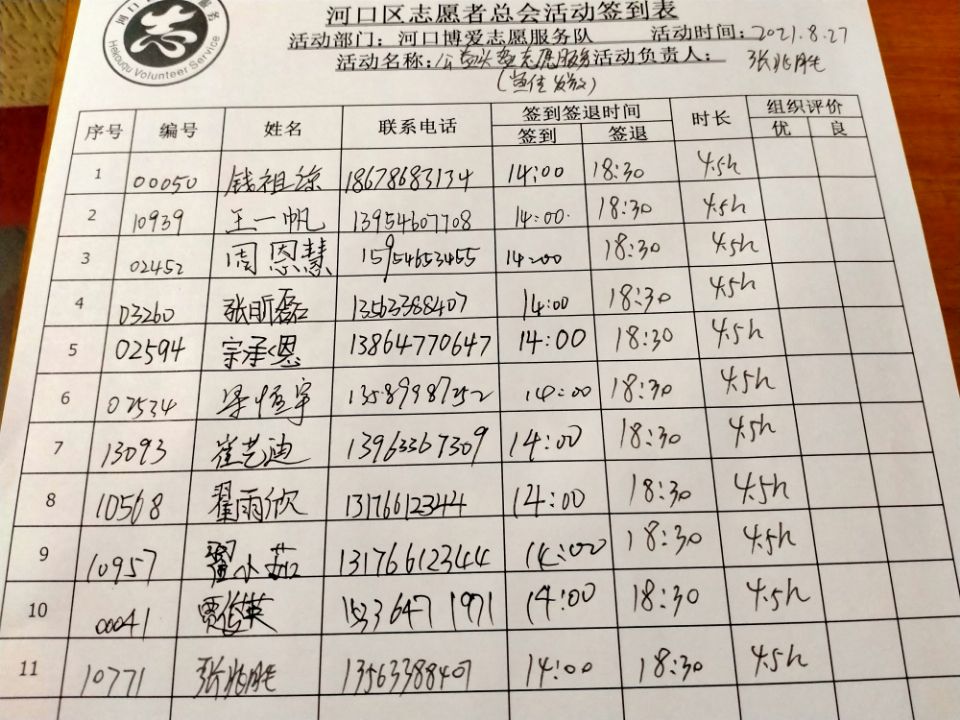 Hekouqu Volunteer Service
志
河口区志愿者总会活动签到表
活动部门：河口博爱志愿服务队 活动时间：2021.8.27
活动名称：志愿服务 活动负责人：张兆胜
序号 编号 姓名 联系电话 签到签退时间 时长 组织评价
签到 签退 优 良
1 00050 钱祖 18678683134 14:00 18:30 4.5h
2 10939 王一帆 13954607708 14:00 18:30 4.5h
3 02452 周恩慧 15954653455 14:00 18:30 4.5h
4 03260 张昕磊 13563388407 14:00 18:30 4.5h
5 02594 宗承恩 13864770647 14:00 18:30 4.5h
6 02534 梁恒宇 13589998752 14:00 18:30 4.5h
7 13093 崔艺迪 13963367309 14:00 18:30 4.5h
8 10568 翟雨欣 13176612344 14:00 18:30 4.5h
9 10957 翟小茹 13176612344 14:00 18:30 4.5h
10 00041 14:00 18:30 4.5h
11 10771 张兆胜 13563388407 14:00 18:30 4.5h